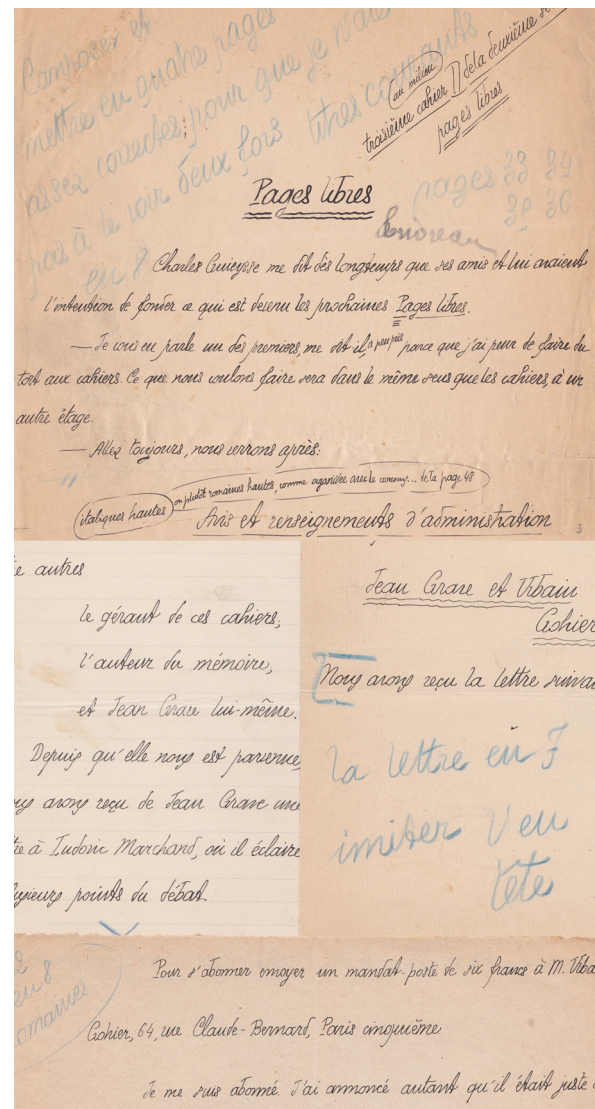 Composer et
mettre en quatre pages
assez correctes pour que je n'aie
pas à le voir deux fois titres courants
en 8
au milieu
troisième cahier II de la deuxième
pages libres
pages 33 34
35 36
Pages libres
Charles Guieysse me dit dès longtemps que ses amis et lui avaient
l'intention de fonder ce qui est devenu les prochaines Pages libres.
— Je vous en parle un des premiers, me dit-il, à peu près parce que j'ai peur de faire du
tort aux cahiers. Ce que nous voulons faire sera dans le même sens que les cahiers, à un
autre étage.
— Allez toujours, nous verrons après.
ou plutôt romaines hautes, comme organisée avec le concours... de la page 48
italiques hautes
Avis et renseignements d'administration
3
e autres
le gérant de ces cahiers;
l'auteur du mémoire,
et Jean Grave lui-même.
Depuis qu'elle nous est parvenue,
us avons reçu de Jean Grave une
tre à Ludovic Marchand, où il éclaire
lusieurs points du débat.
Jean Grave et Urbain
Gohier
Nous avons reçu la lettre suiva
la lettre en 7
imiter V en
tête
2
en 8
romaines
Pour s'abonner envoyer un mandat-poste de six francs à M. Urba
Gohier, 64, rue Claude-Bernard, Paris cinquième
Je me suis abonné. J'ai annoncé autant qu'il était juste